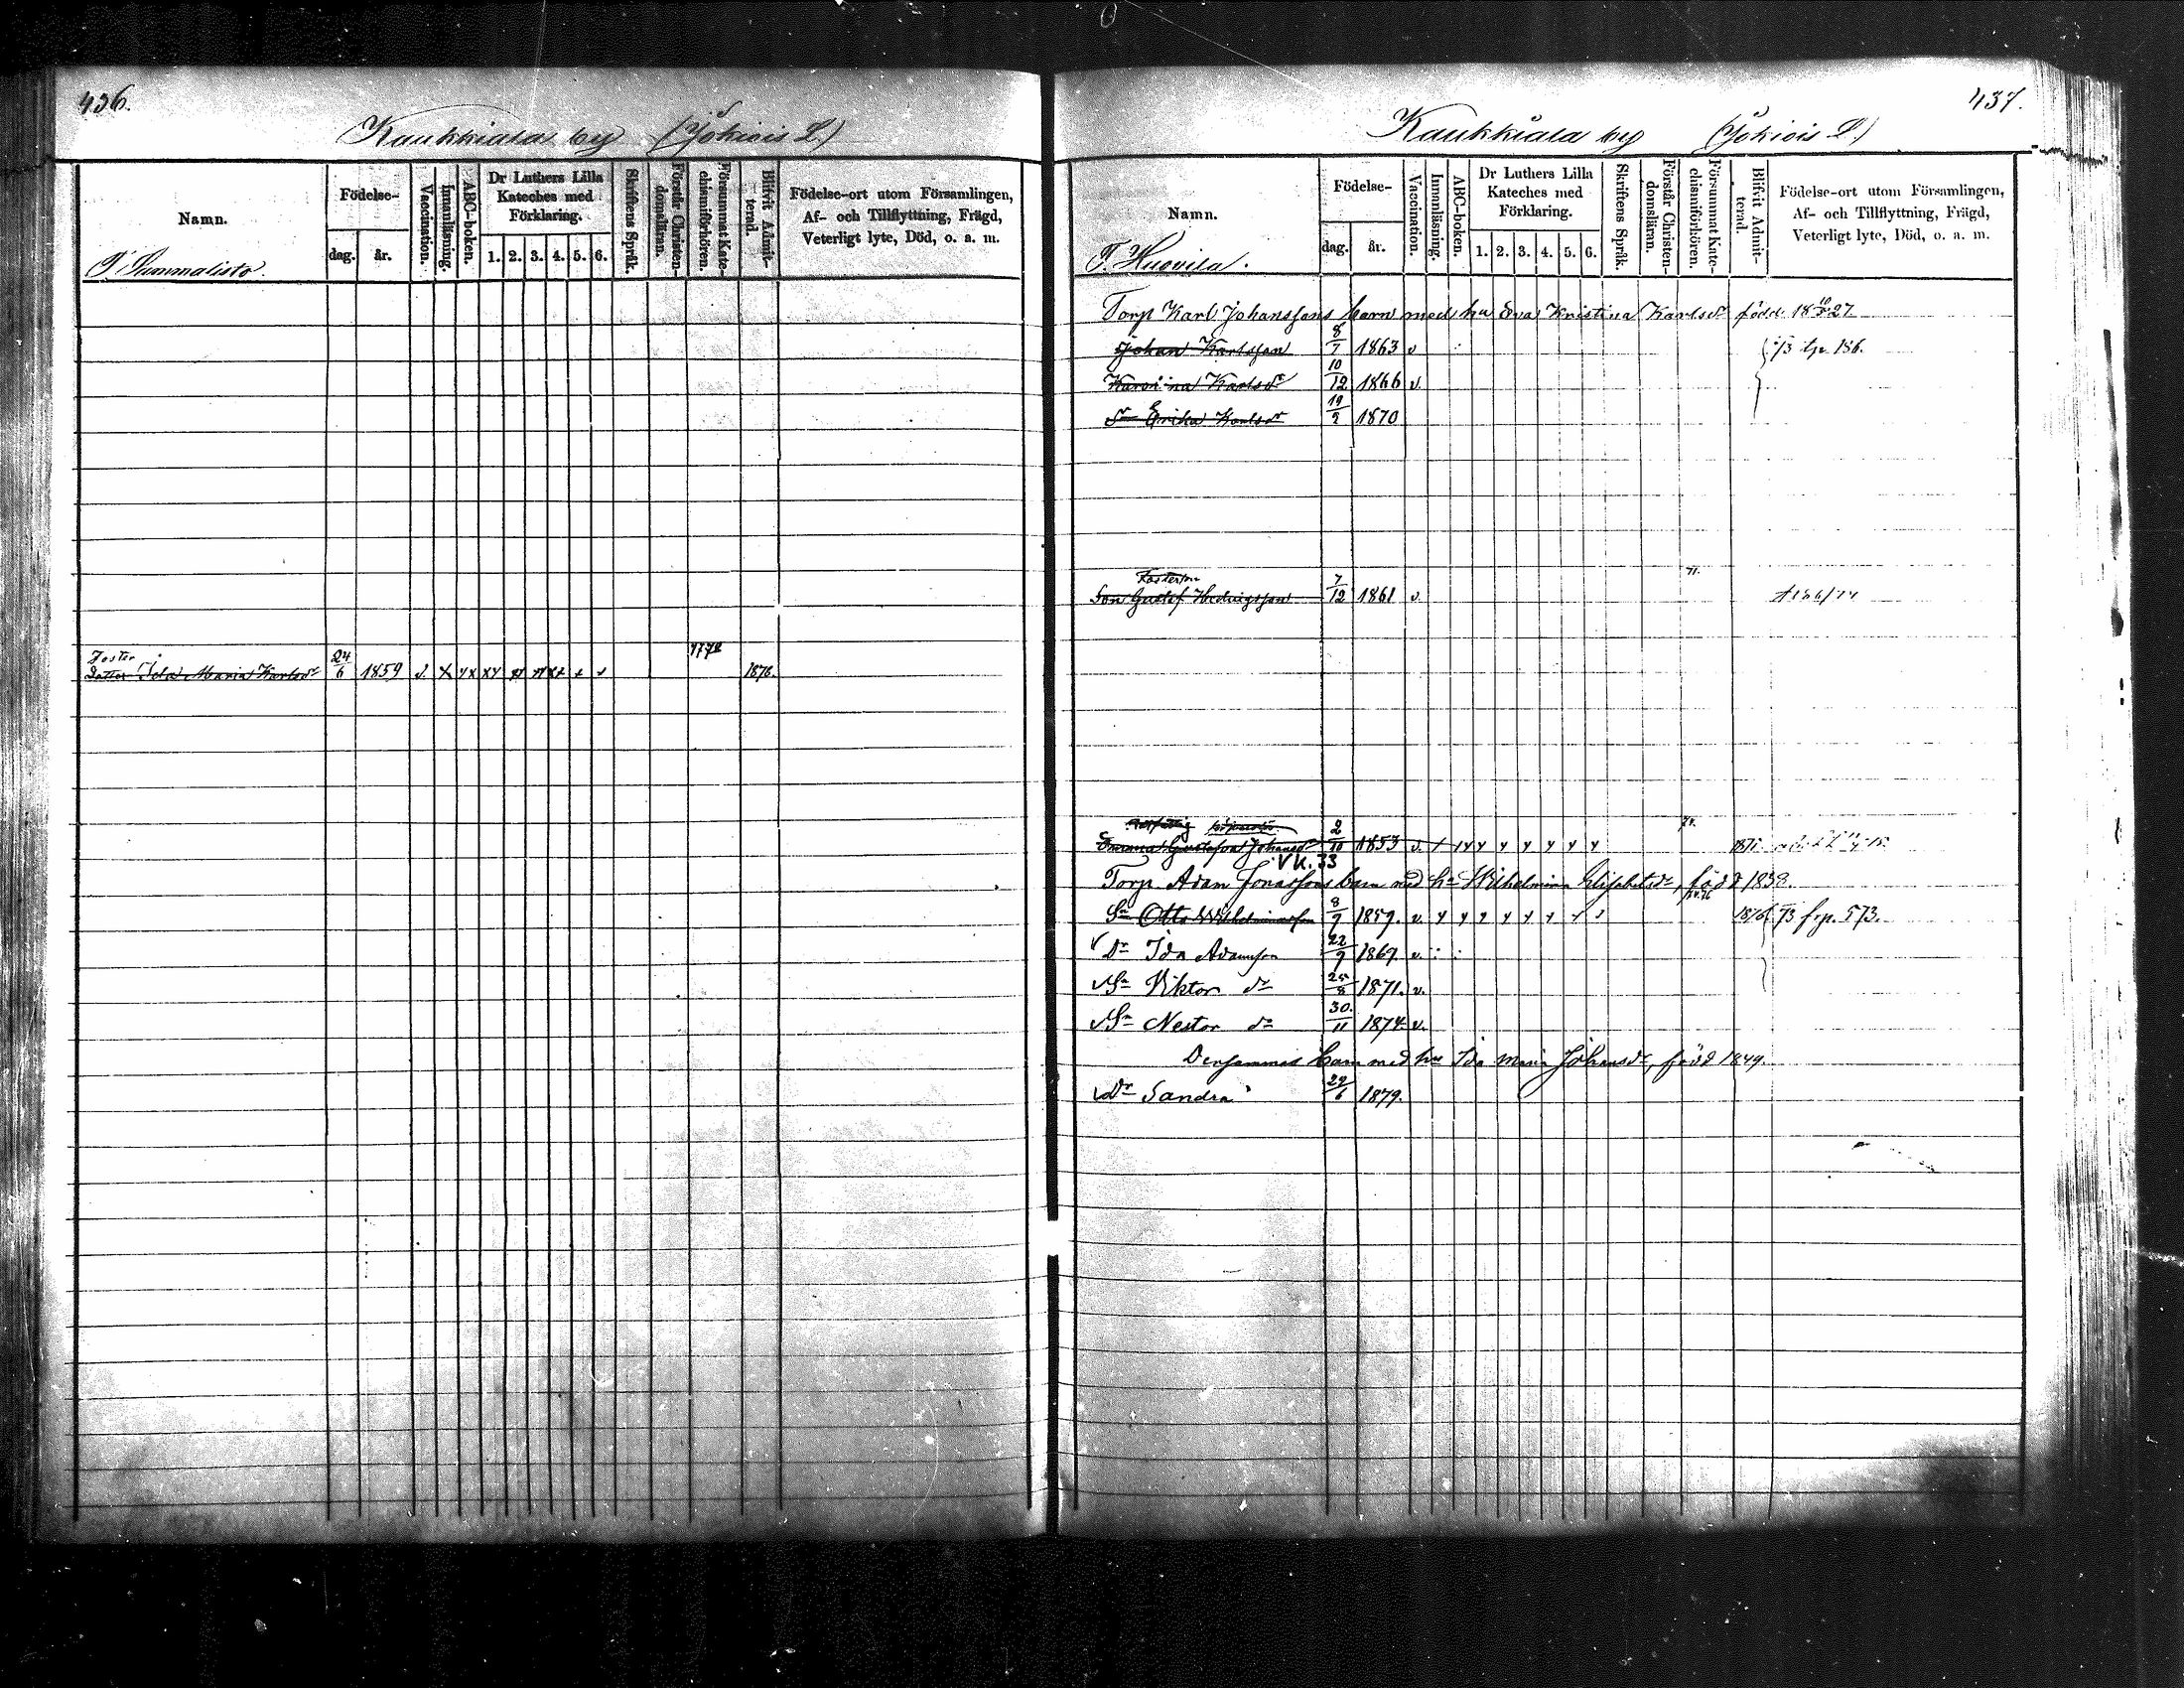 436.
Kaukkiala by (Jokiois S.)
Namn.
Födelse-
dag. år.
Vaccination.
Innanläsning.
ABC-boken.
Dr Luthers Lilla Kateches med Förklaring.
1. 2. 3. 4. 5. 6.
Skriftens Språk.
Förstår Christendomsläran.
Försummat Katechismiförhören.
Blifvit Admitterad.
Födelse-ort utom Församlingen,
Af- och Tillflyttning, Frägd,
Veterligt lyte, Död, o. a. m.
T. Sammalisto.
Foster
Dotter Ida Maria Karlsdr 24/6 1859 v. x xx xx xx xx xx x x 1876.
437.
Kaukkiala by (Jokiois S.)
Namn.
Födelse-
dag. år.
Vaccination.
Innanläsning.
ABC-boken.
Dr Luthers Lilla Kateches med Förklaring.
1. 2. 3. 4. 5. 6.
Skriftens Språk.
Förstår Christendomsläran.
Försummat Katechismiförhören.
Blifvit Admitterad.
Födelse-ort utom Församlingen,
Af- och Tillflyttning, Frägd,
Veterligt lyte, Död, o. a. m.
T. Huovila.
Torp Karl Johanssons barn med hu Eva Kristina Karlsdr född 27
Johan Karlsson 8/7 1863 v 186.
Karolina Karlsdr 10/12 1866 v.
Erika Karlsdr 19/2 1870
Fosterson 71.
Son Gustaf Hedvigsson 7/12 1861 v.
Emma Gustafva Johansdr 2/10 1853 v.
VK. 33
Torp. Adam Jonassons barn med hu Wilhelmina Elisabetsdr, född 1838.
Sn Otto Wilhelminasson 8/9 1859. v. 1876 frp. 573.
Dr Ida Adamsson 22/9 1869. v.
Sn Viktor do 25/8 1871. v.
Sn Nestor do 30./11 1874. v.
Densammes barn med hu Ida Maria Johansdr, född 1849.
Dr Sandra 29/6 1879.